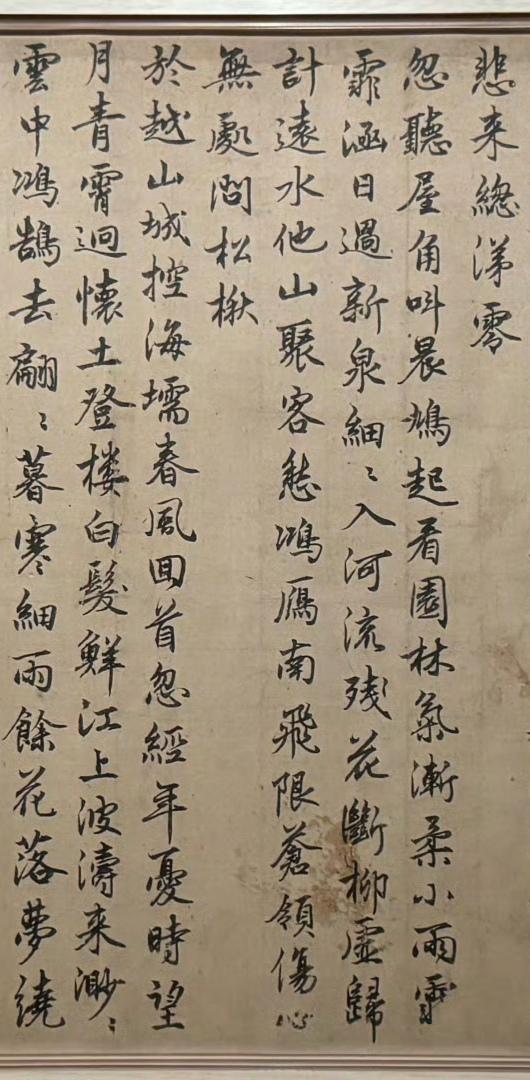 悲来總涕零
忽聽屋角叫晨鳩起看園林氣漸柔小雨霏
霏涵日過新泉細〻入河流殘花斷柳虛歸
計遠水他山聚客愁鴻雁南飛限蒼嶺傷心
無處問松楸
於越山城控海壖春風回首忽經年憂時望
月青霄迥懷土登樓白髮鮮江上波濤来渺〻
雲中鴻鵠去翩〻暮寒細雨餘花落夢繞